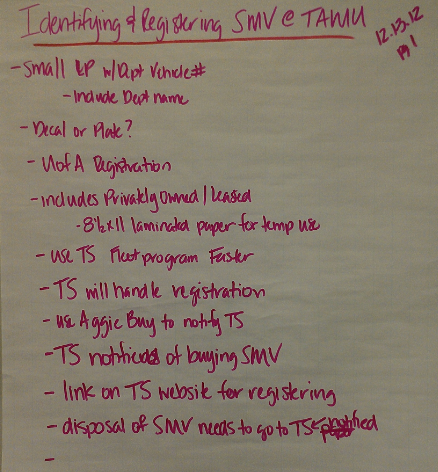 Identifying & Registering SMV @ TAMU
12.13.12
pg 1
- Small LP w/Dept Vehicle#
- Include Dept name
- Decal or Plate?
- U of A Registration
- includes Privately Owned / Leased
- 8½x11 laminated paper for temp use
- use TS Fleet program Faster
- TS will handle registration
- use Aggie Buy to notify TS
- TS notified of buying SMV
- link on TS website for registering
- disposal of SMV needs to go to TS notified
-